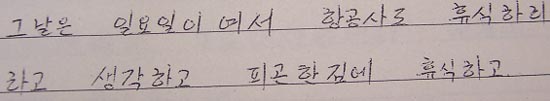 그날은 일요일이 여서 항공사도 휴식하리
라고 생각하고 피곤한김에 휴식하고